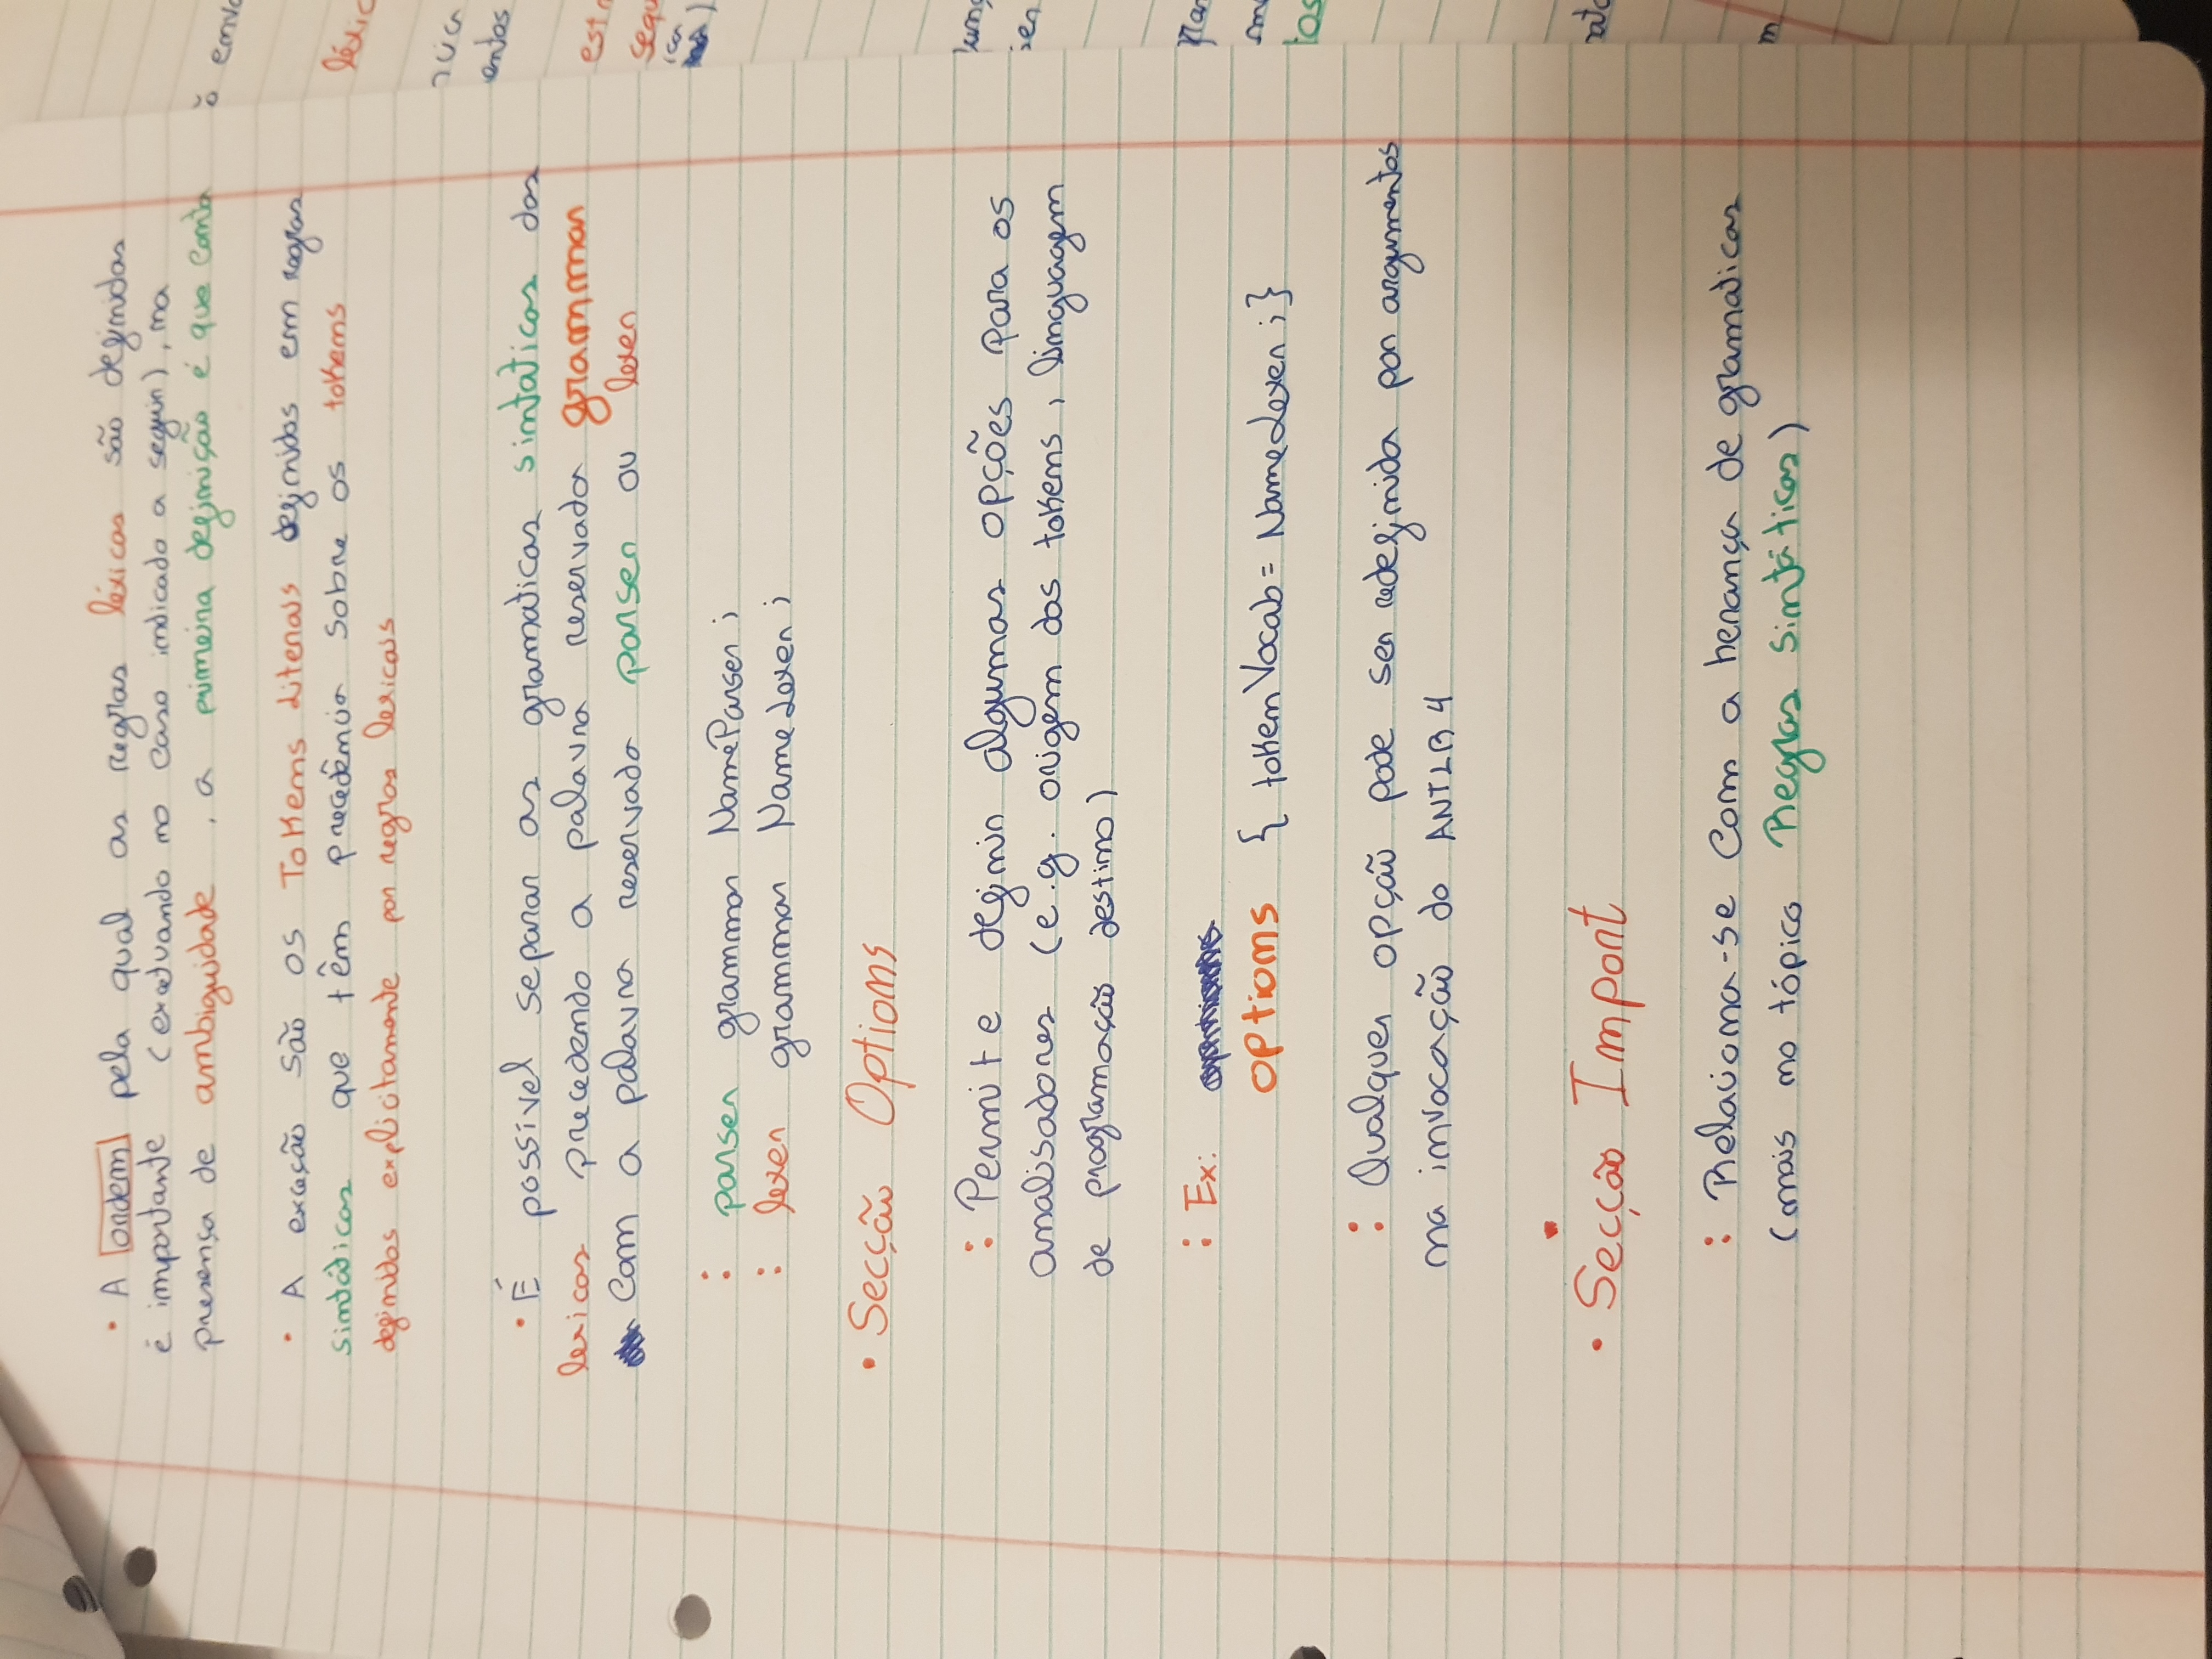 • A ordem pela qual as regras léxicas são definidas
é importante (exetuando no caso indicado a seguir), na
presença de ambiguidade , a primeira definição é que conta
• A exceção são os Tokens Literais definidos em regras
sintáticas que têm precedência sobre os tokens
definidos explicitamente por regras lexicais
• É possível separar as gramaticas sintaticas das
lexicas precedendo a palavra reservada grammar
com a palavra reservada parser ou lexer
: parser grammar NameParser ;
: lexer grammar NameLexer ;
• Secção Options
: Permite definir algumas opções para os
analisadores (e.g. origem dos tokens , linguagem
de programação destino)
: Ex:
options { tokenVocab = NameLexer ; }
: Qualquer opção pode ser redefinida por argumentos
na invocação do ANTLR 4
• Secção Import
: Relaciona-se com a herança de gramaticas
(mais no tópico Regras Sintáticas)